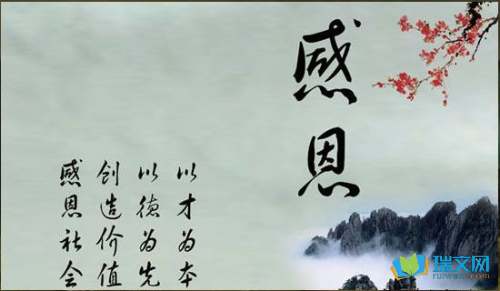 感恩
以才为本
以德为先
创造价值
感恩社会
瑞文网